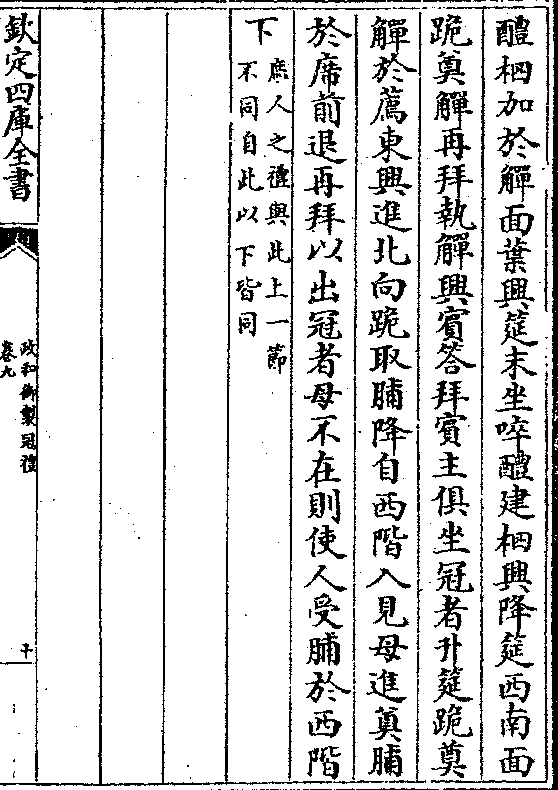 醴柶加於觶面葉興筵末坐啐醴建柶興降筵西南面
跪奠觶再拜執觶興賓答拜賓主俱坐冠者升筵跪奠
觶於薦東興進北向跪取脯降自西階入見母進奠脯
於席前退再拜以出冠者母不在則使人受脯於西階
下庶人之禮與此上一節
不同自此以下皆同
欽定四庫全書
政和御製冠禮
卷九